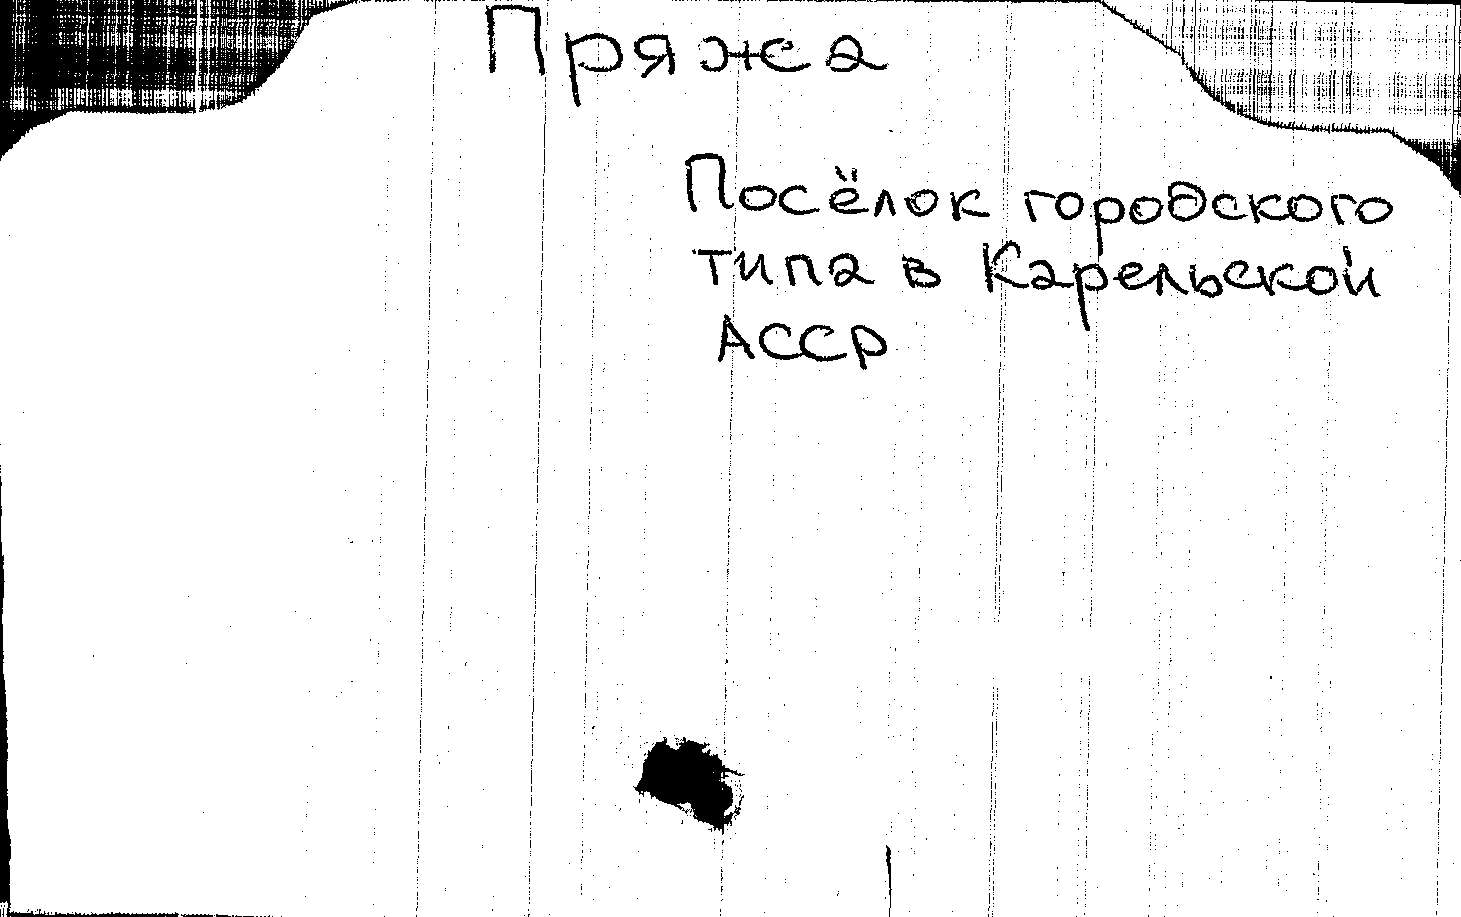 Пряжа
Посёлок городского
типа в Карельской
АССР